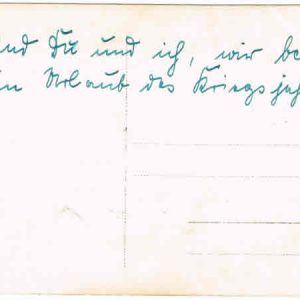 und Du und ich, wir be
in Urlaub des Kriegsjah